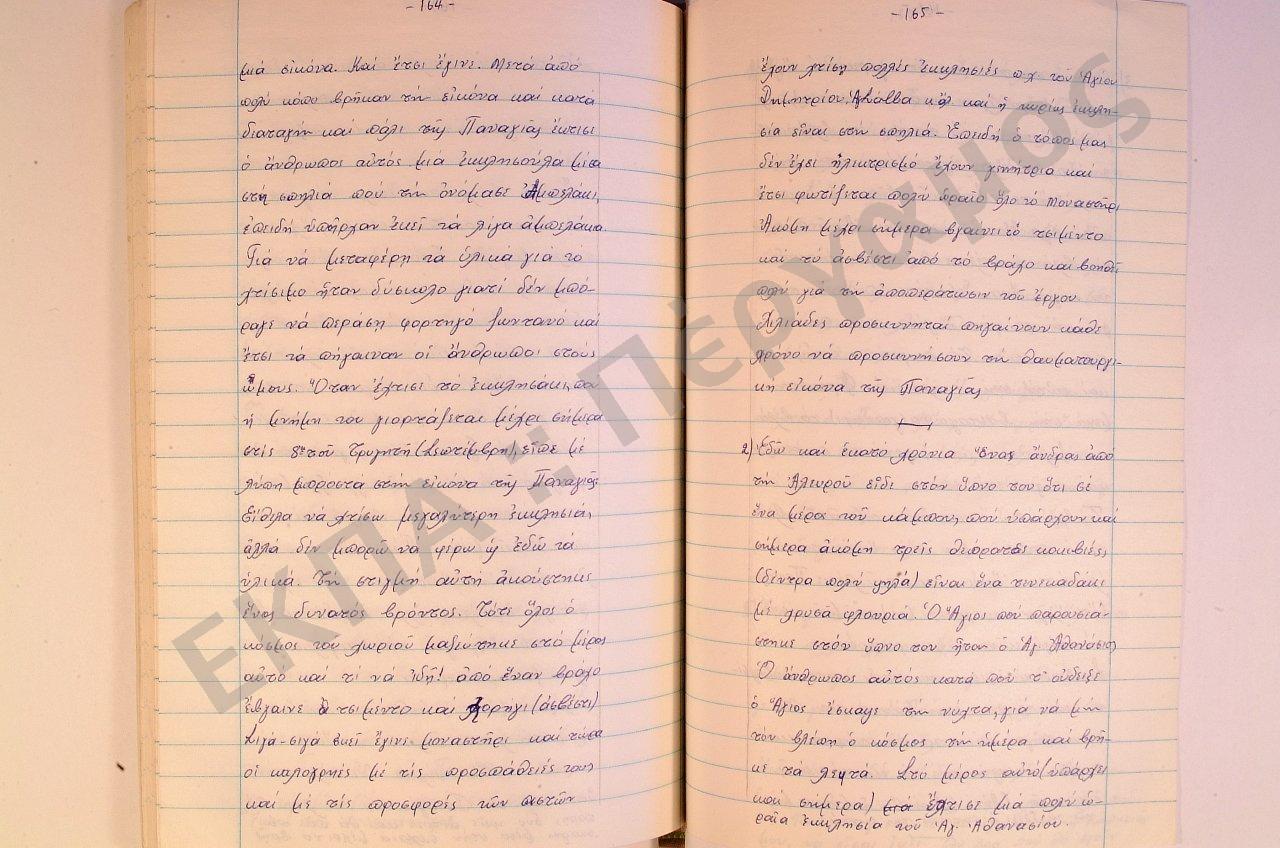 - 164 -
μιά εἰκόνα. Καί ἔτσι ἔγινε. Μετά ἀπό
πολύ κόπο βρῆκαν τήν εἰκόνα καί κατά
διαταγήν καί πάλι τῆς Παναγίας ἔχτισε
ὁ ἄνθρωπος αὐτός μιά ἐκκλησούλα μέσα
στή σπηλιά πού τήν ὀνόμασε Ἀμπελάκι,
ἐπειδή ὑπῆρχαν ἐκεῖ τά λίγα ἀμπελάκια.
Γιά νά μεταφέρη τά ὑλικά γιά το
χτίσιμο ἦταν δύσκολο γιατί δέν μπό-
ραγε νά περάση φορτηγό ζωντανό καί
ἔτσι τά πήγαιναν οἱ ἄνθρωποι στούς
ὤμους. Ὅταν ἔχτισε τό ἐκκλησάκι, που
ἡ μνήμη του γιορτάζεται μέχρι σήμερα
στίς 8 τοῦ Τρυγητῆ (Σεπτέμβρη), εἶπε μέ
λύπη μπροστά στήν εἰκόνα τῆς Παναγίας
Ἤθελα νά χτίσω μεγαλύτερη ἐκκλησιά,
ἀλλά δέν μπορῶ νά φέρω ὡς ἐδῶ τά
ὑλικά. Τή στιγμή αὐτή ἀκούστηκε
ἕνας δυνατός βρόντος. Τότε ὅλος ὁ
κόσμος τοῦ χωριοῦ μαζεύτηκε στό μέρος
αὐτό καί τί νά ἰδῆ! ἀπό ἕναν βράχο
ἔβγαινε τσιμέντο καί χορήγι (ἀσβέστι)
Σιγά-σιγά ἐκεῖ ἔγινε μοναστήρι καί τώρα
οἱ καλογριές μέ τίς προσπάθειές τους
καί μέ τίς προσφορές τῶν πιστῶν
- 165 -
ἔχουν χτίση πολλές ἐκκλησιές π.χ. τοῦ Ἁγίου
Δημητρίου, Ἁγ. Σάββα κ.ἄλ. καί ἡ κυρίως ἐκκλη-
σία εἶναι στήν σπηλιά. Ἐπειδή ὁ τόπος μας
δέν ἔχει ἠλεκτρισμό ἔχουν γεννήτρια καί
ἔτσι φωτίζεται πολύ ὡραῖα ὅλο τό Μοναστήρι
Ἀκόμη μέχρι σήμερα βγαίνει τό τσιμέντο
καί τό ἀσβέστι ἀπό τό βράχο καί βοηθεῖ
πολύ γιά τήν ἀποπεράτωσιν τοῦ ἔργου.
Χιλιάδες προσκυνηταί πηγαίνουν κάθε
χρόνο νά προσκυνήσουν τή θαυματουργι-
κή εἰκόνα τῆς Παναγίας
2) Ἐδῶ καί ἑκατό χρόνια ἕνας ἄνδρας ἀπό
τήν Ἀλευροῦ εἶδε στόν ὕπνο του ὅτι σέ
ἕνα μέρος τοῦ κάμπου, πού ὑπάρχουν καί
σήμερα ἀκόμη τρεῖς θεόρατες κοκεβιές
(δέντρα πολύ ψηλά) εἶναι ἕνα τενεκεδάκι
μέ χρυσά φλουριά. Ὁ Ἅγιος πού παρουσιά-
στηκε στόν ὕπνο του ἦταν ὁ Ἁγ. Ἀθανάσιος
Ὁ ἄνθρωπος αὐτός κατά πού τ' οὔδειξε
ὁ Ἅγιος ἔσκαψε τήν νύχτα, γιά νά μήν
τόν βλέπη ὁ κόσμος τήν ἡμέρα καί βρῆ-
κε τά λεφτά. Στό μέρος αὐτό (ὑπάρχει
καί σήμερα) ἔχτισε μιά πολύ ὡ-
ραῖα ἐκκλησία τοῦ Ἁγ. Ἀθανασίου.
ΕΚΠΑ :: Πέργαμος